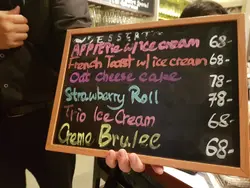 DESSERT
Apple Pie w/ ice cream 68-
French Toast w/ ice cream 68-
Oat cheese cake 78-
Strawberry Roll 78-
Trio Ice Cream 68-
Creme Brulee 68-